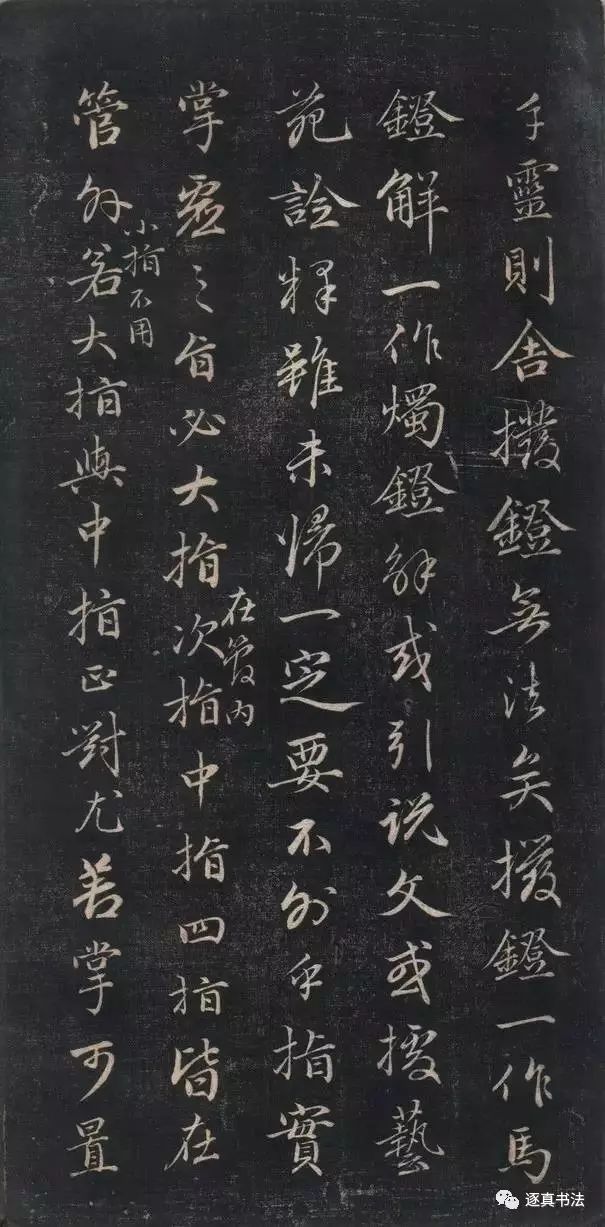 手靈則舍撥鐙無法矣撥鐙一作馬
鐙解一作燭鐙解或引説文或據藝
苑詮釋雖未歸一定要不外乎指實
掌虛之旨必大指次指在管内中指四指皆在
管外小指不用若大指與中指正對尤善掌可置
逐真书法